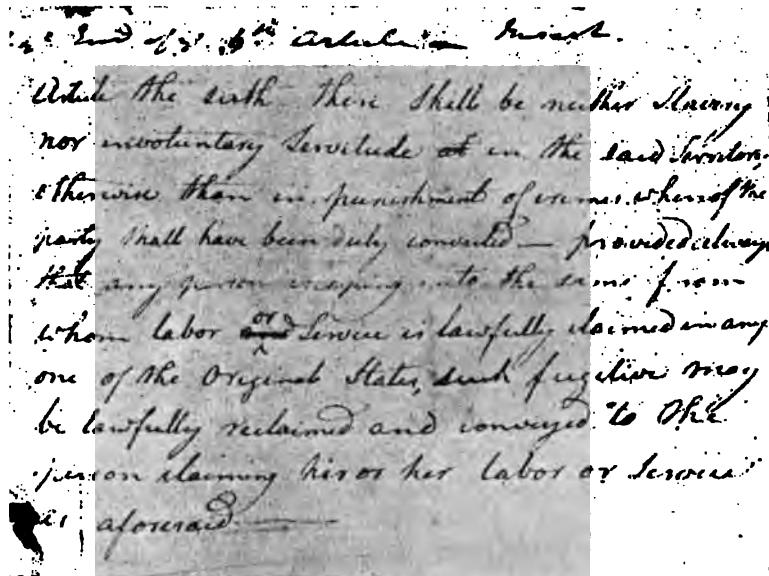 End of ye 5th Article Insert.
Article the sixth There Shall be neither Slavery
nor involuntary Servitude at in the said Territory
otherwise than in punishment of crimes whereof the
party shall have been duly convicted — provided always
that any person escaping into the same from
whom labor or and Service is lawfully claimed in any
one of the Original States, such fugitive may
be lawfully reclaimed and conveyed to the
person claiming his or her labor or Service
as aforesaid —